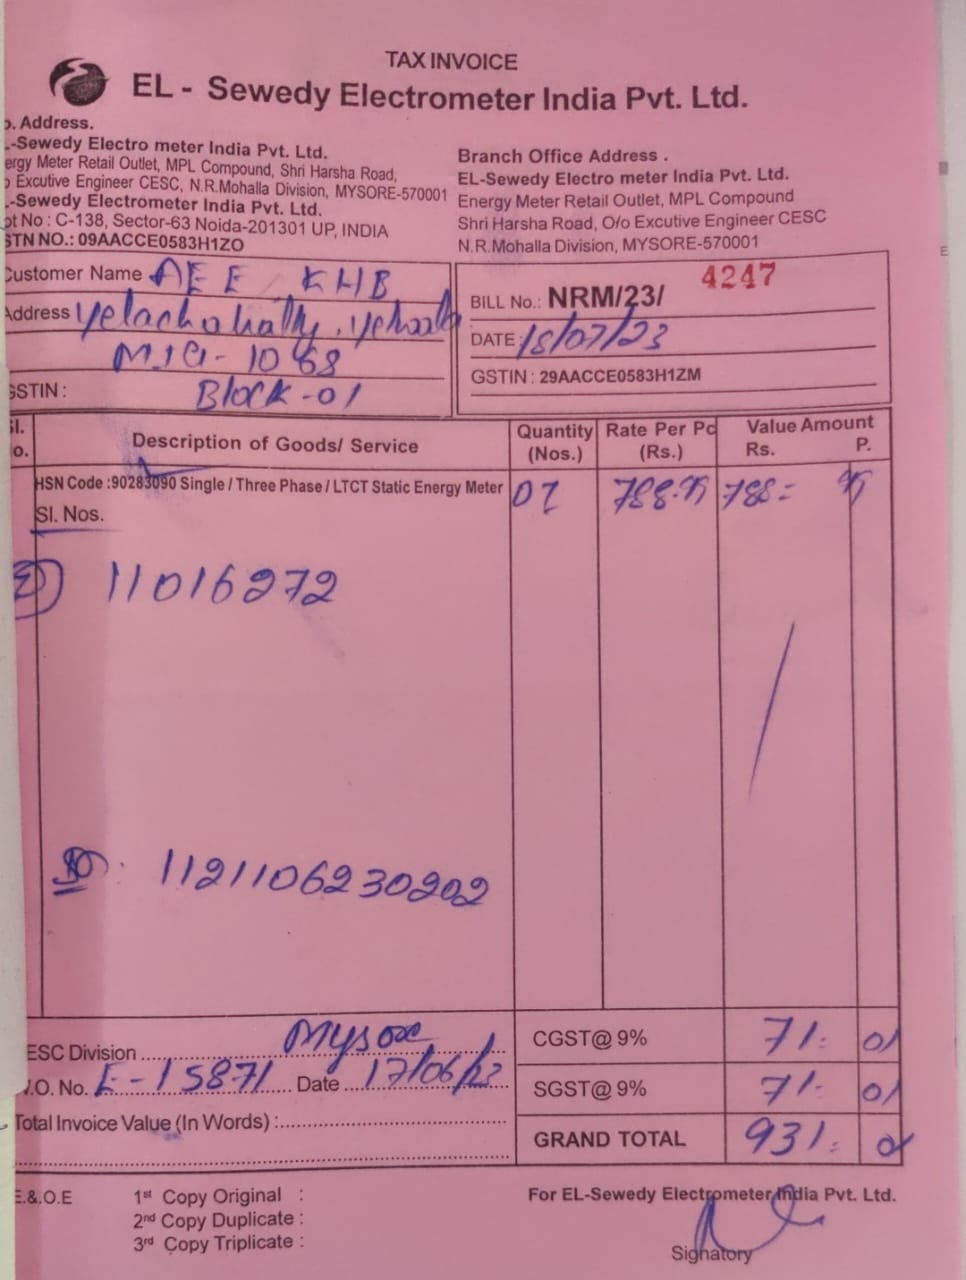 TAX INVOICE
EL - Sewedy Electrometer India Pvt. Ltd.
o. Address.
-Sewedy Electro meter India Pvt. Ltd.
ergy Meter Retail Outlet, MPL Compound, Shri Harsha Road,
o Excutive Engineer CESC, N.R.Mohalla Division, MYSORE-570001
-Sewedy Electrometer India Pvt. Ltd.
ot No : C-138, Sector-63 Noida-201301 UP, INDIA
STN NO.: 09AACCE0583H1ZO
Branch Office Address .
EL-Sewedy Electro meter India Pvt. Ltd.
Energy Meter Retail Outlet, MPL Compound
Shri Harsha Road, O/o Excutive Engineer CESC
N.R.Mohalla Division, MYSORE-570001
Customer Name AEE KHB
Address
MIG- 1068
GSTIN : Block-01
4247
BILL No.: NRM/23/
DATE : 18/07/23
GSTIN : 29AACCE0583H1ZM
Sl. No. Description of Goods/ Service Quantity (Nos.) Rate Per Pc (Rs.) Value Amount Rs. P.
HSN Code :90283090 Single / Three Phase / LTCT Static Energy Meter 01 788.95 788= 95
Sl. Nos.
11016272
1121106230202
ESC Division Mysore
.O. No. E-15871 Date 17/06/23
Total Invoice Value (In Words) :
CGST@ 9% 71. 01
SGST@ 9% 71- 01
GRAND TOTAL 931.
E.&.O.E
1st Copy Original :
2nd Copy Duplicate :
3rd Copy Triplicate :
For EL-Sewedy Electrometer India Pvt. Ltd.
Sighatory